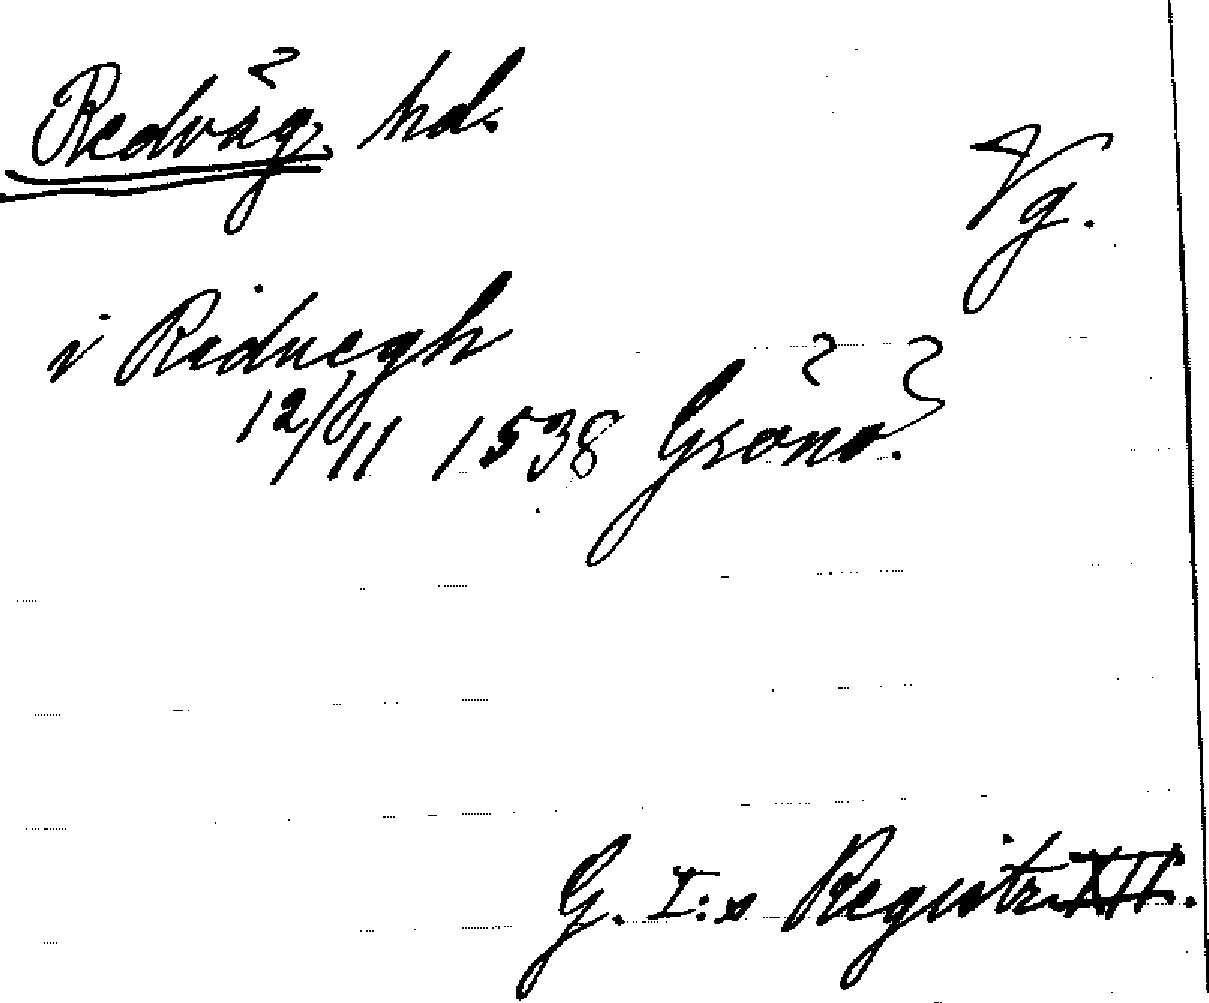 Redväg hd.
Vg.
i Riduegh
12/11 1538 Grönö.
G. I:s Registr. XII.